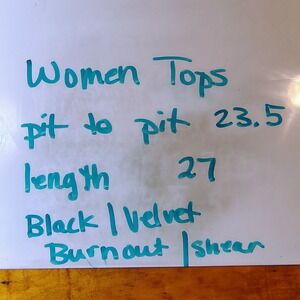 Women Tops
pit to pit 23.5
length 27
Black / Velvet
Burnout / shear